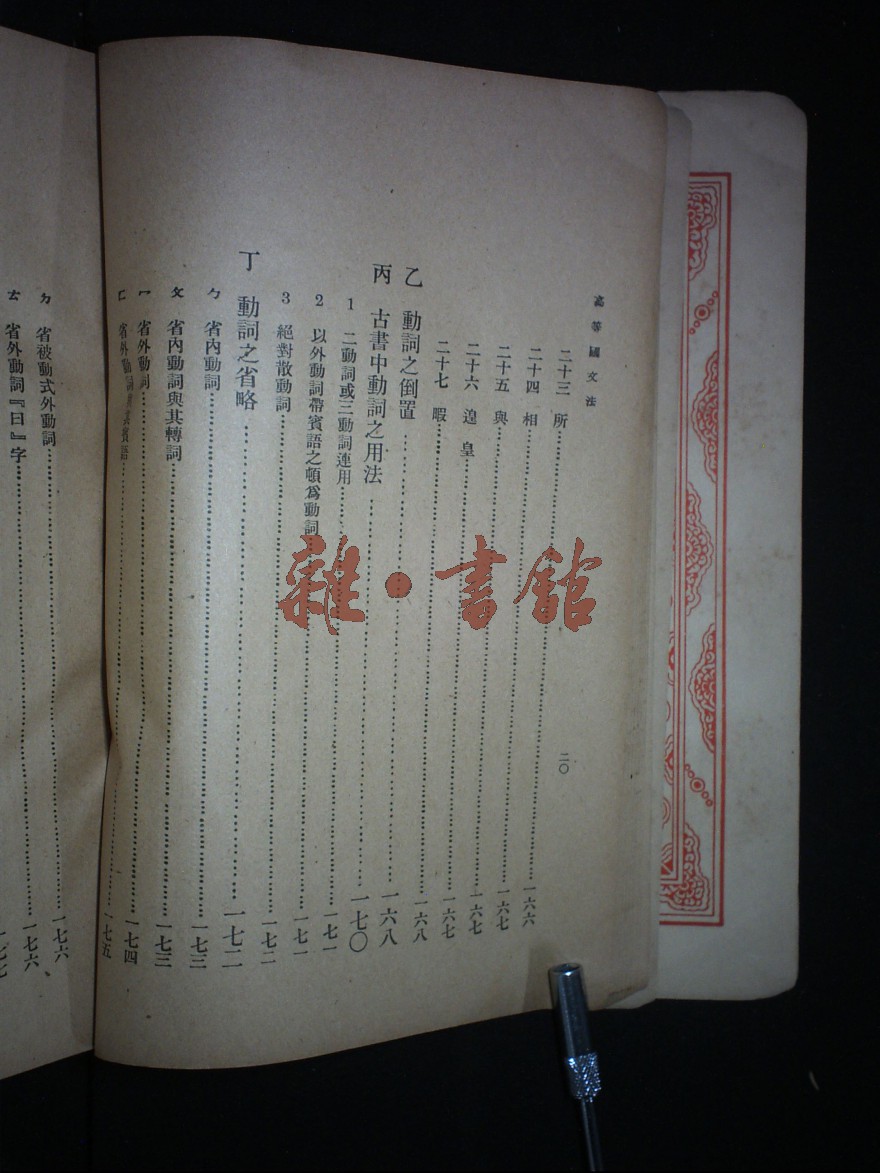 高等國文法
二〇
二十三 所……一六六
二十四 相……一六七
二十五 與……一六七
二十六 遑皇……一六七
二十七 暇……一六八
乙 動詞之倒置……一六八
丙 古書中動詞之用法……一七〇
1 二動詞或三動詞連用……一七一
2 以外動詞帶賓語之頓爲動詞……一七一
3 絕對散動詞……一七二
丁 動詞之省略……一七二
ㄅ 省內動詞……一七三
ㄆ 省內動詞與其轉詞……一七三
ㄇ 省外動詞……一七四
ㄈ 省外動詞與其賓語……一七五
ㄉ 省被動式外動詞……一七六
ㄊ 省外動詞『曰』字……一七六
雜·書館